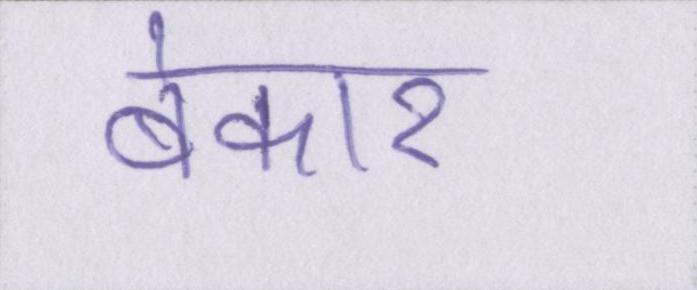 बेकार